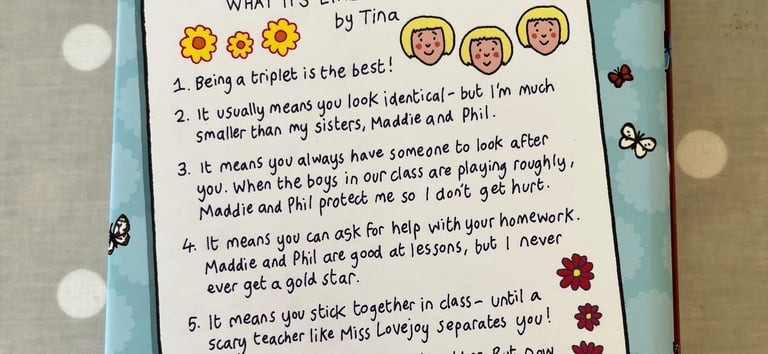 WHAT IT'S
by Tina
1. Being a triplet is the best!
2. It usually means you look identical - but I'm much
smaller than my sisters, Maddie and Phil.
3. It means you always have someone to look after
you. When the boys in our class are playing roughly,
Maddie and Phil protect me so I don't get hurt.
4. It means you can ask for help with your homework.
Maddie and Phil are good at lessons, but I never
ever get a gold star.
5. It means you stick together in class - until a
scary teacher like Miss Lovejoy separates you!
But now